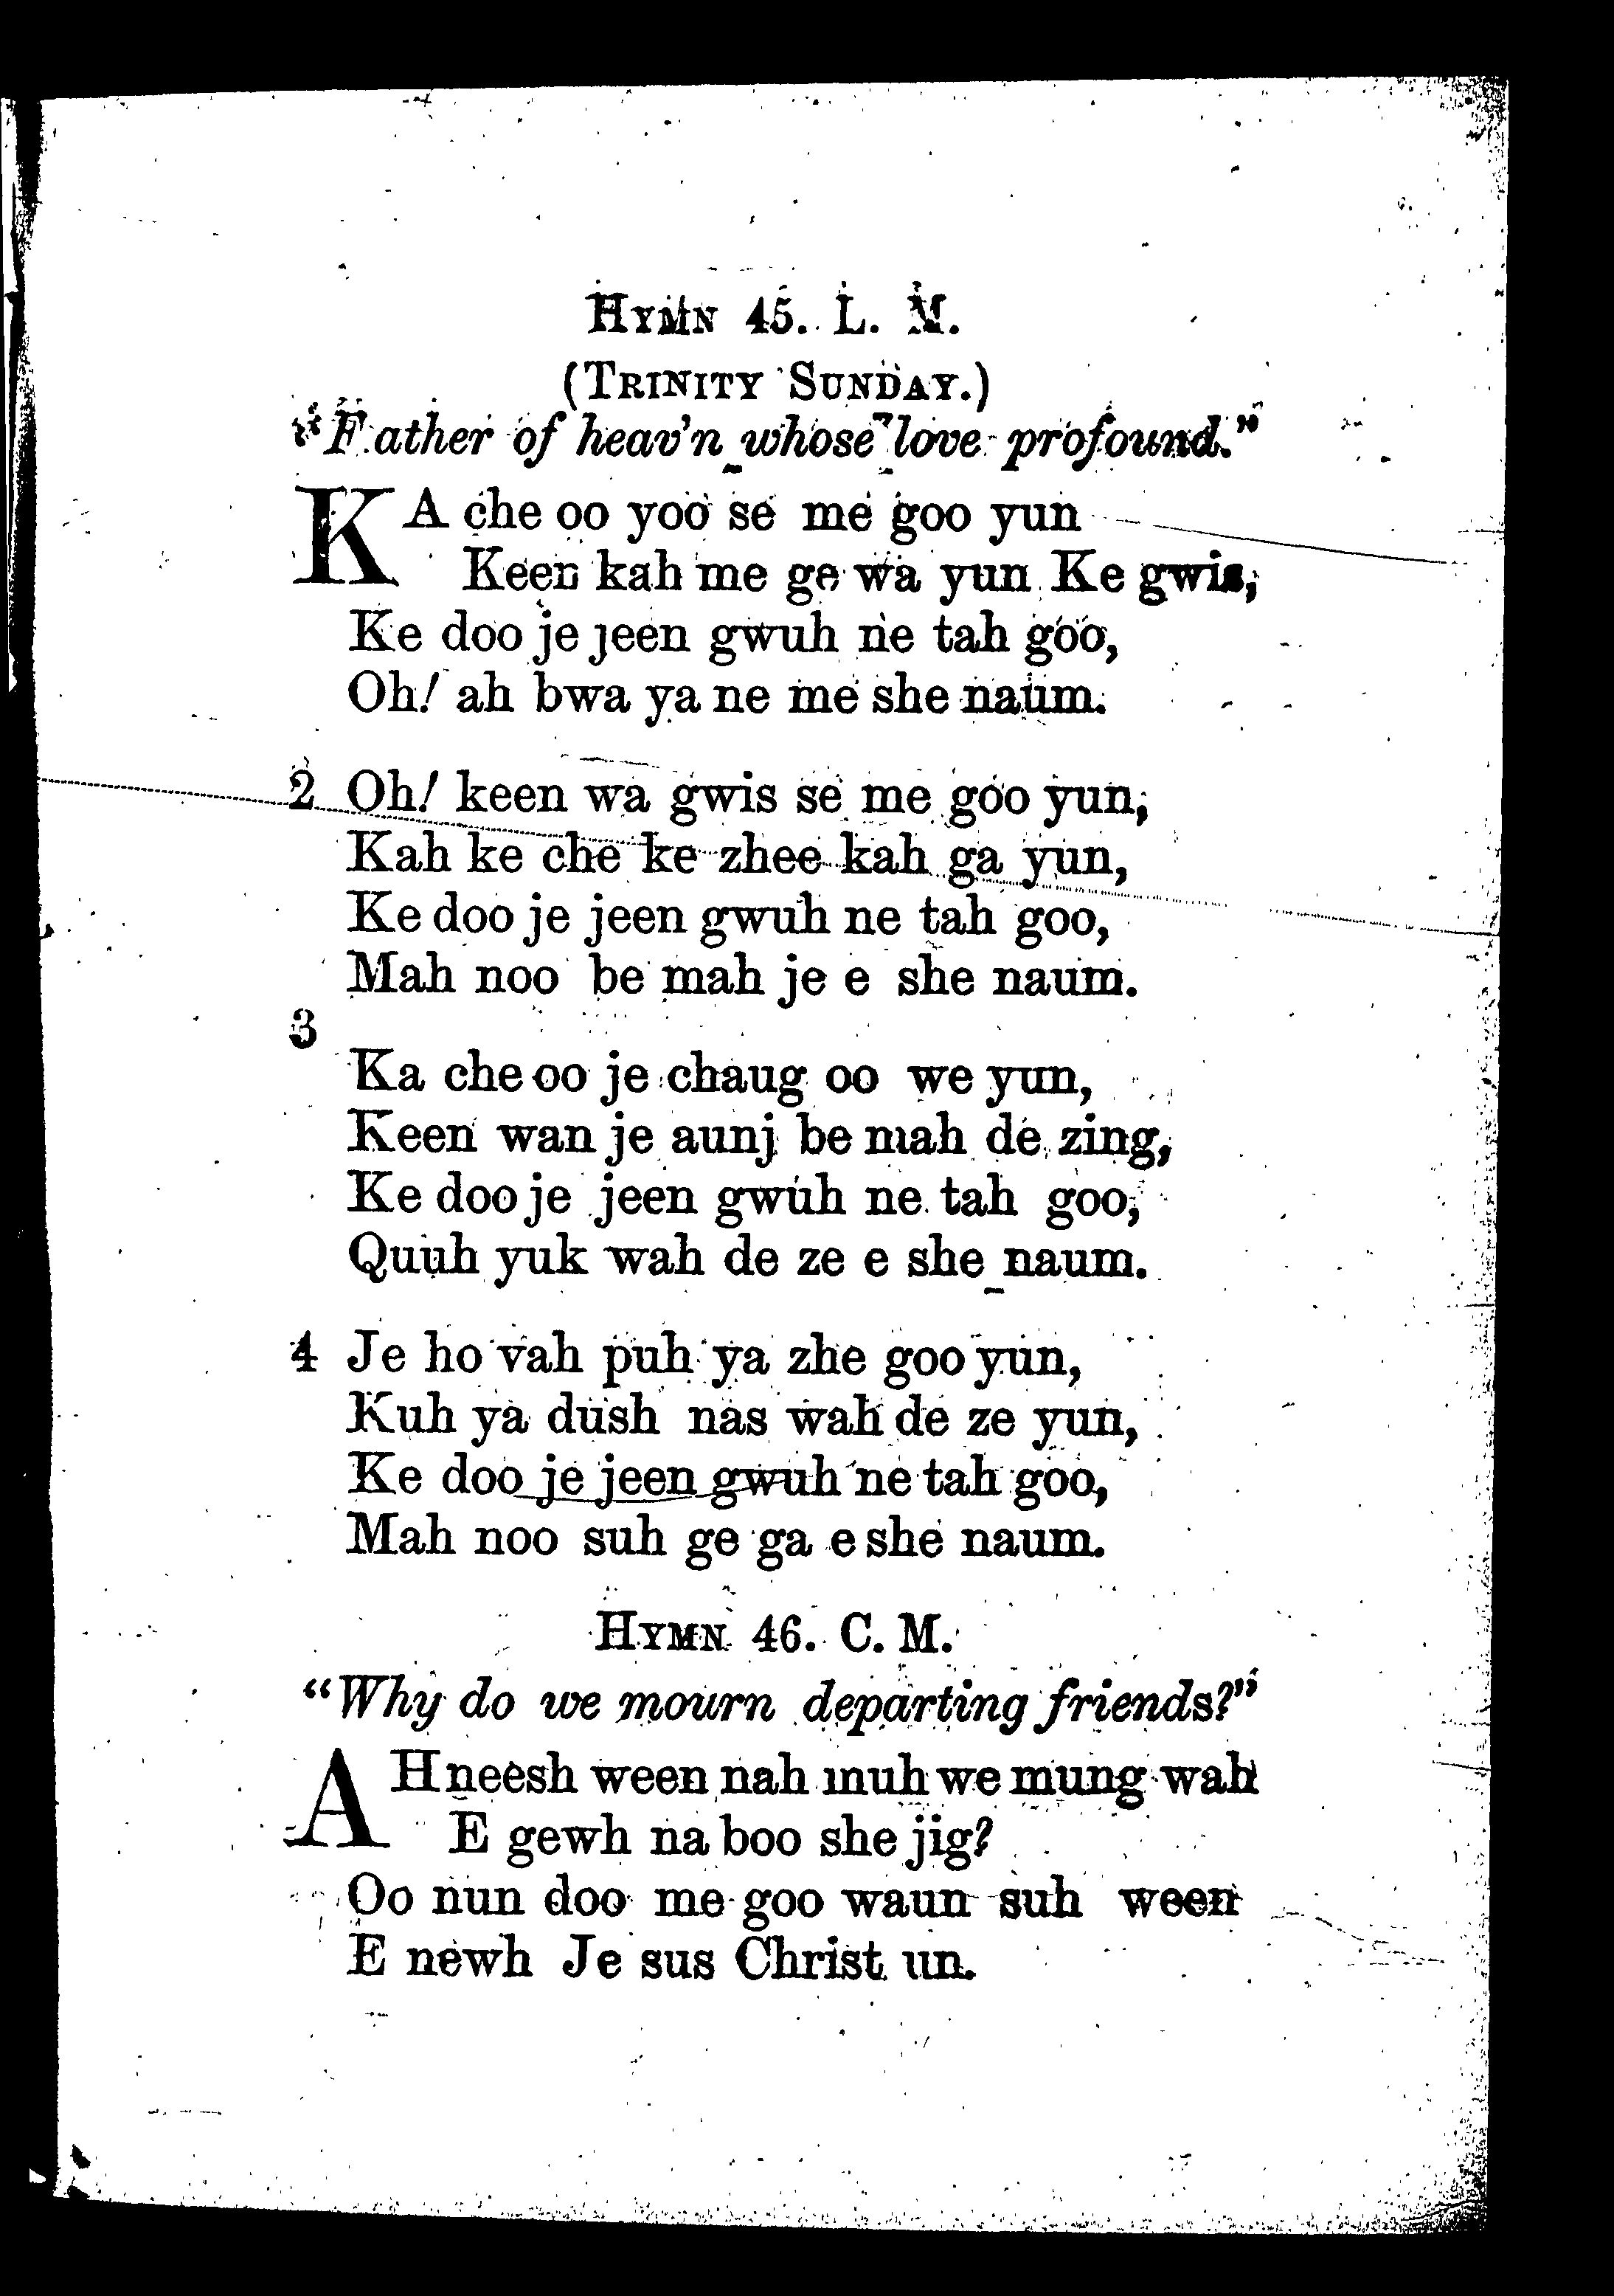 HYMN 45. L. M.
(TRINITY SUNDAY.)
"Father of heav'n whose love profound."
KA che oo yoo se me goo yun
Keen kah me ge wa yun Ke gwis,
Ke doo je jeen gwuh ne tah goo,
Oh! ah bwa ya ne me she naum.
2 Oh! keen wa gwis se me goo yun,
Kah ke che ke zhee kah ga yun,
Ke doo je jeen gwuh ne tah goo,
Mah noo be mah je e she naum.
3
Ka che oo je chaug oo we yun,
Keen wan je aunj be mah de zing,
Ke doo je jeen gwuh ne tah goo,
Quuh yuk wah de ze e she naum.
4 Je ho vah puh ya zhe goo yun,
Kuh ya dush nas wah de ze yun,
Ke doo je jeen gwuh ne tah goo,
Mah noo suh ge ga e she naum.
HYMN 46. C. M.
"Why do we mourn departing friends?"
AH neesh ween nah muh we mung wah
E gewh na boo she jig?
Oo nun doo me goo waun suh ween
E newh Je sus Christ un.